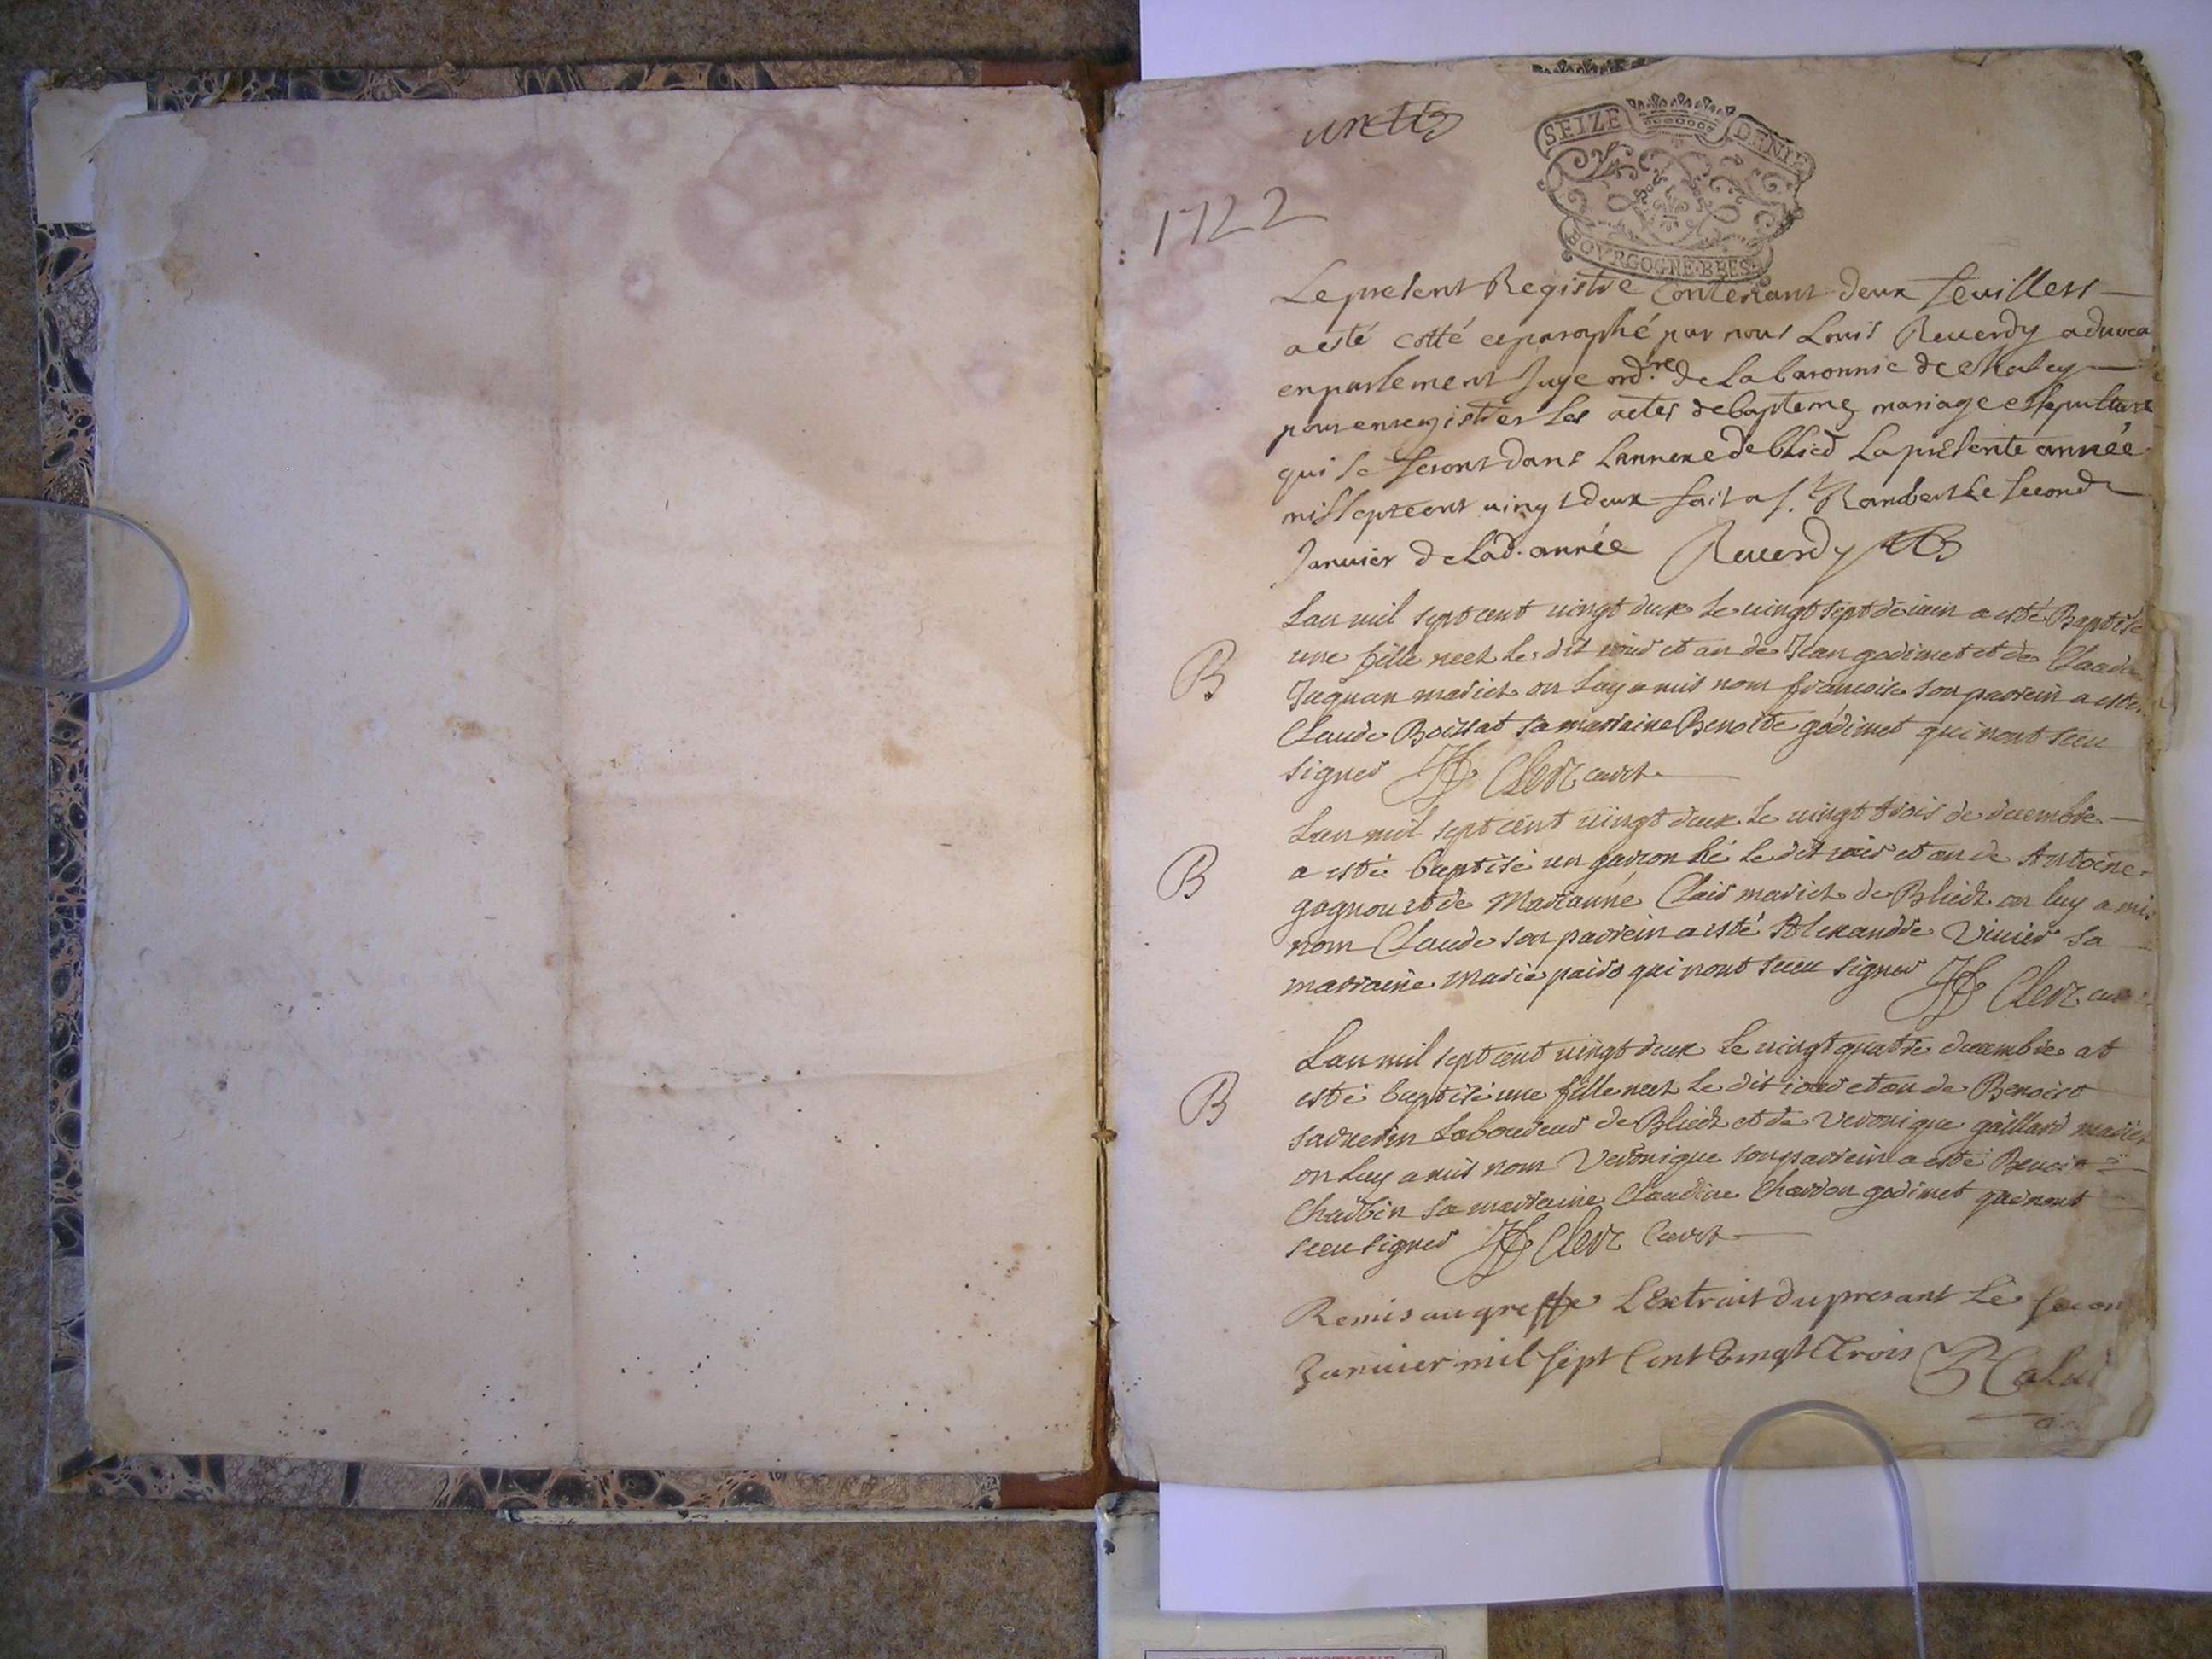 un
SEIZE DENIE
BOVRGOGNE·BRES
1722
Le present Registre Contenant deux feuillets
a esté cotté et paraphé par nous Louis Reuerdy aduoca
en parlement Juge ord.re de la baronnie de
pour enregistrer les actes de bapteme mariage et sepulture
qui se feront dans Lannexe de bleid La presente année
mil sept cent uingt deux fait a St. Rambert Le second
Januier de lad. année Reuerdy
Lan mil sept cent uingt deux le uingt sept de iuin a esté Baptisé
B
une fille neeh le dit iour et an de Jean godimet et de Claud
Juquan marieh on luy a mis nom francoise son parrein a esté
Claude Boissat sa marraine Benoite godimet qui nont sceu
signer Clerc cureh
Lan mil sept cent uingt deux le uingt trois de decembre
B
a esté baptisé un garcon né le dit iour et an de Antoine
gognou et de Marianne Clair marieh de Bliedz on luy a mis
nom Claude son parrein a esté Alexandre Viuier sa
marraine Marie qui nont sceu signer Clerc cu
Lan mil sept cent uingt deux le uingt quatre decembre at
B
esté baptisé une fille neeh le dit iour et an de Benoist
Laboureur de Bliedz et de Veronique gaillard marieh
on luy a mis nom Veronique son parrein a esté Benoi
Charbin sa marraine Claudine Chardon godimet qui nont
sceu signer Clerc Cureh
Remis au greffe L'Extrait du presant Le secon
Januier mil sept Cent Vingt Trois